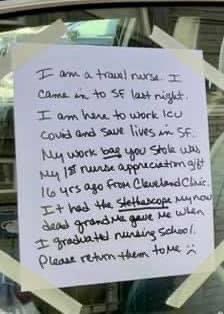 I am a travel nurse. I
came in to SF last night.
I am here to work ICU
Covid and save lives in SF.
My work bag you stole was
My 1st nurse appreciation gift
16 yrs ago from Cleveland Clinic.
It had the stethoscope My now
dead grandma gave me when
I graduated nursing school.
Please return them to me